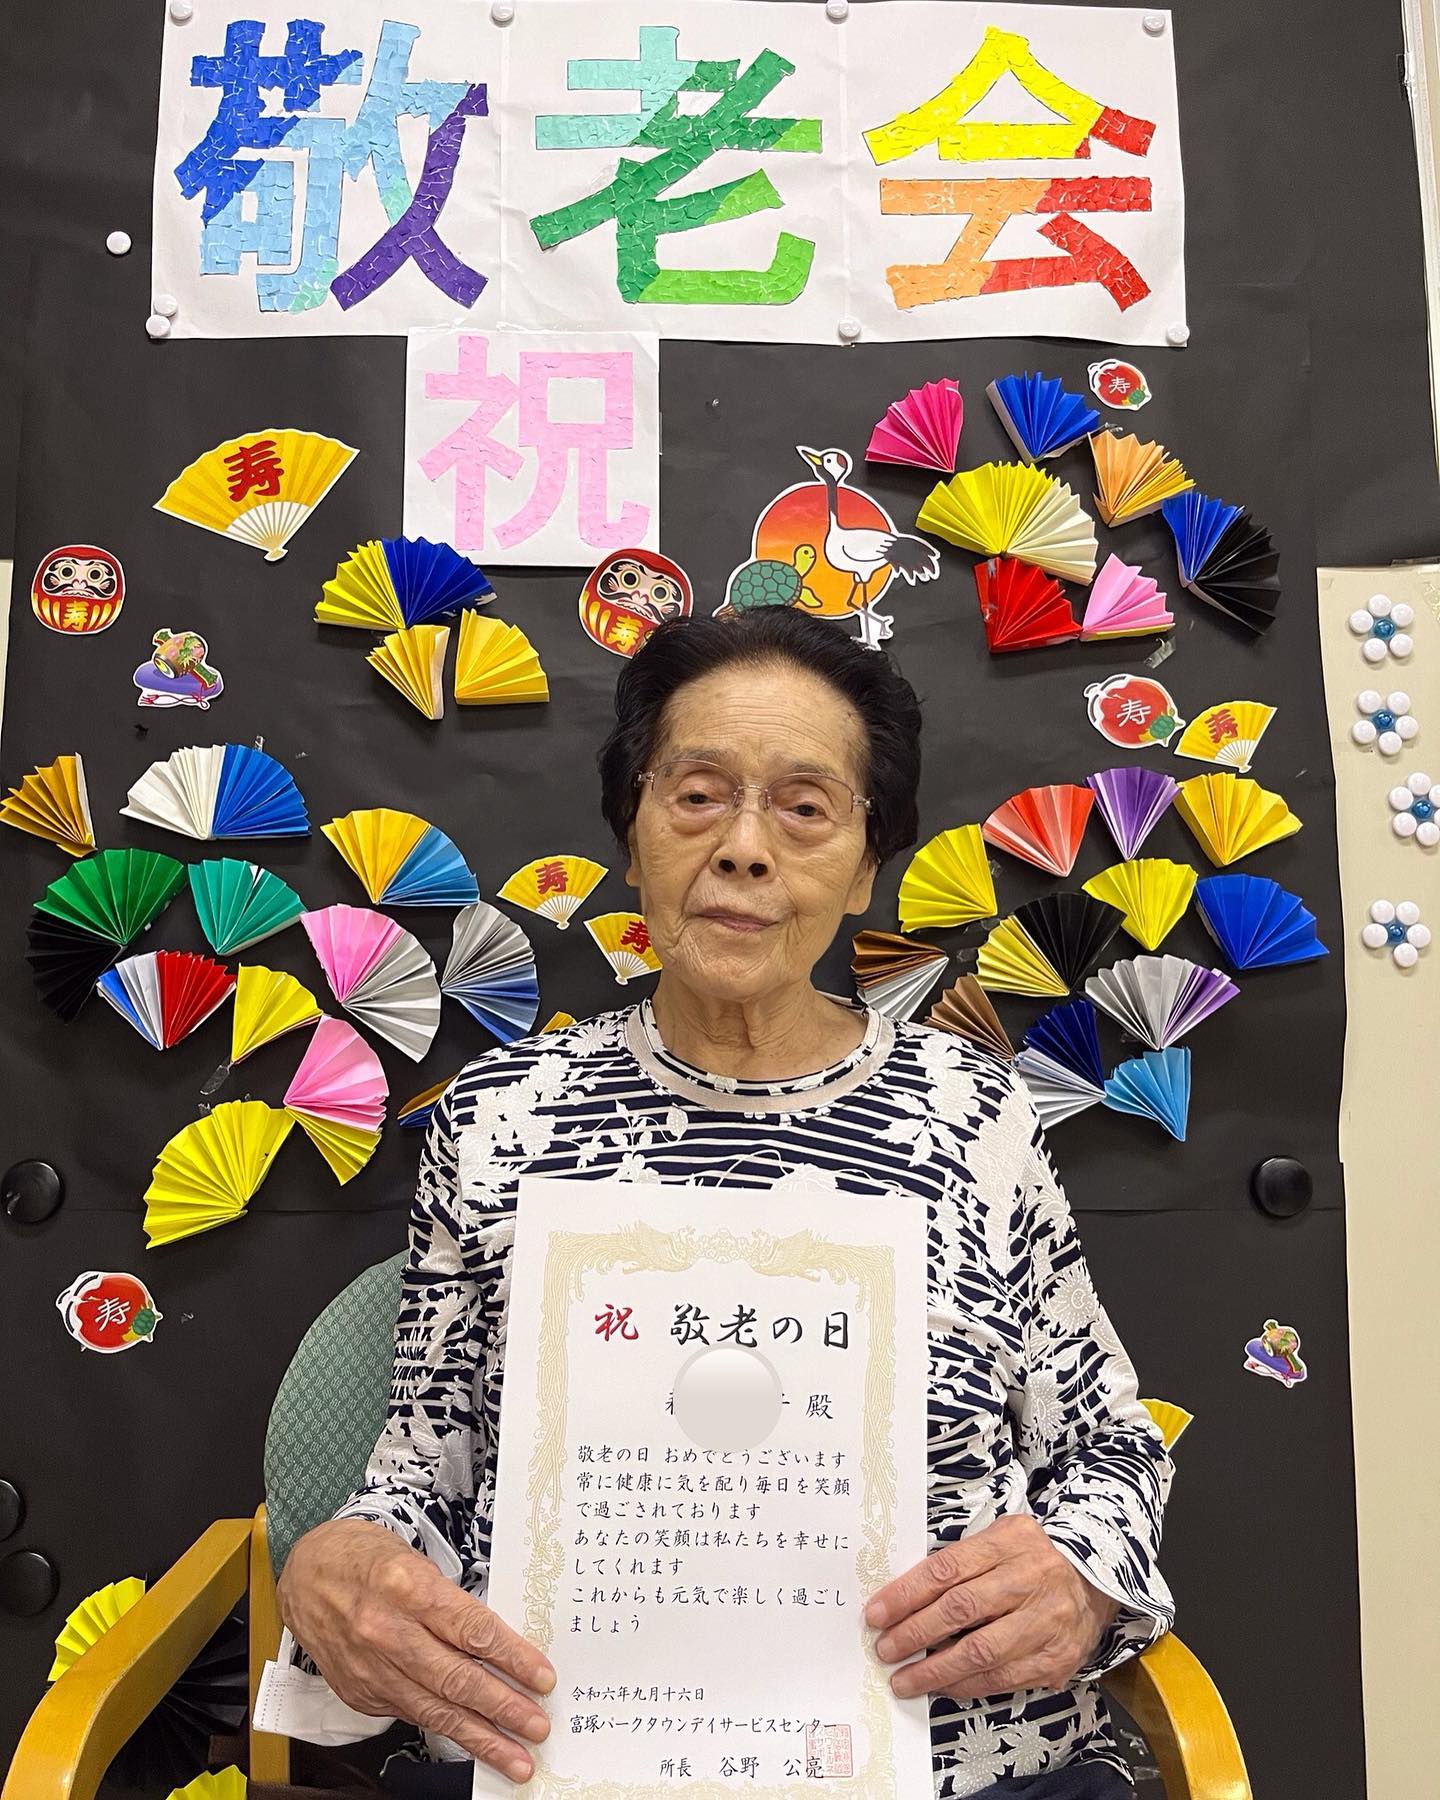 敬老会
祝
寿
寿
寿
寿
寿
寿
寿
寿
寿
祝 敬老の日
殿
敬老の日 おめでとうございます
常に健康に気を配り毎日を笑顔
で過ごされております
あなたの笑顔は私たちを幸せに
してくれます
これからも元気で楽しく過ごし
ましょう
令和六年九月十六日
富塚パークタウンデイサービスセンター
所長 谷野 公亮